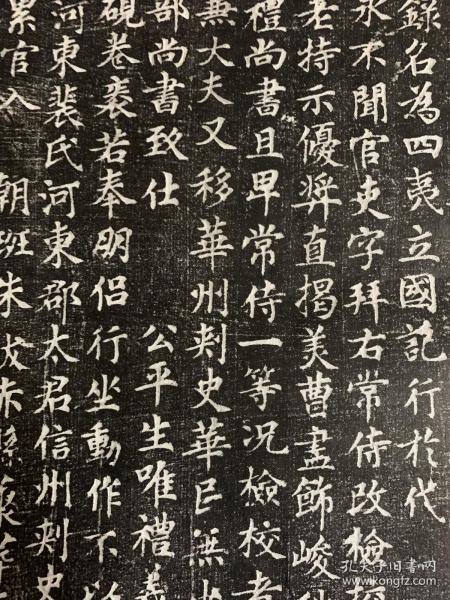 錄名為四夷立國記行於代
永不聞官吏字拜右常侍改檢校
老特示優奨直揭美曹盡飾峻
禮尚書且卑常侍一等況檢校者
兼大夫又移華州刺史華巨無
部尚書致仕 公平生唯禮義
硯卷袠若奉明侶行坐動作不
河東裴氏河東郡太君信州刺史
累官入 朝班朱犮赤縣
孔夫子旧书网
www.kongfz.com